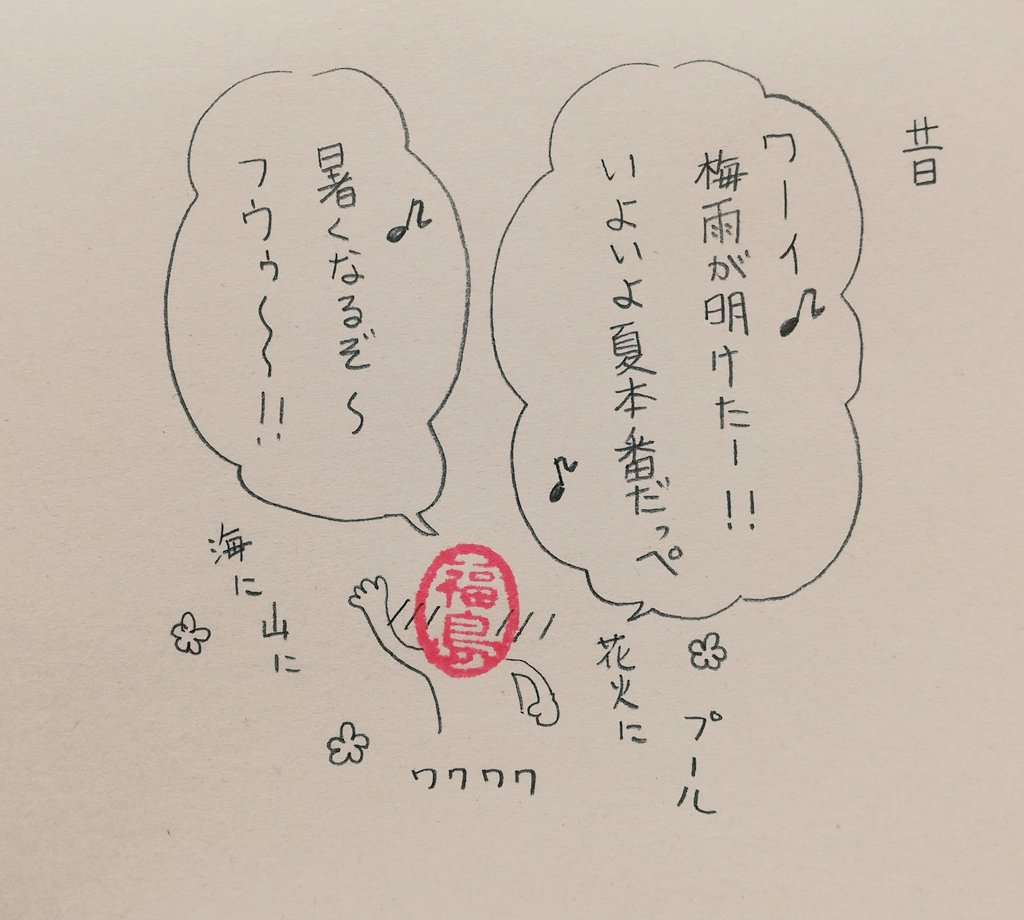 昔
ワーイ♪
梅雨が明けたー!!
いよいよ夏本番だっぺ♪
暑くなるぞ〜♪
フウゥ〜〜!!
福島
海に
山に
花火に
プール
ワクワク